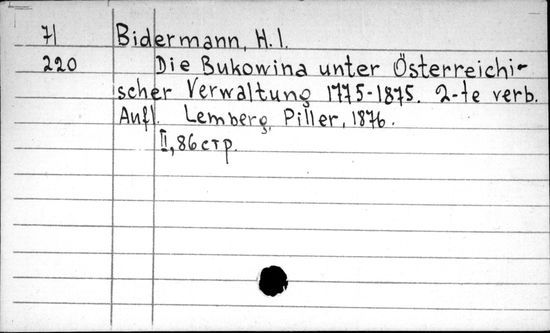 71 Bidermann, H. I.
220 Die Bukowina unter Österreichi-
scher Verwaltung 1775-1875. 2-te verb.
Aufl. Lemberg, Piller, 1876.
II, 86 стр.